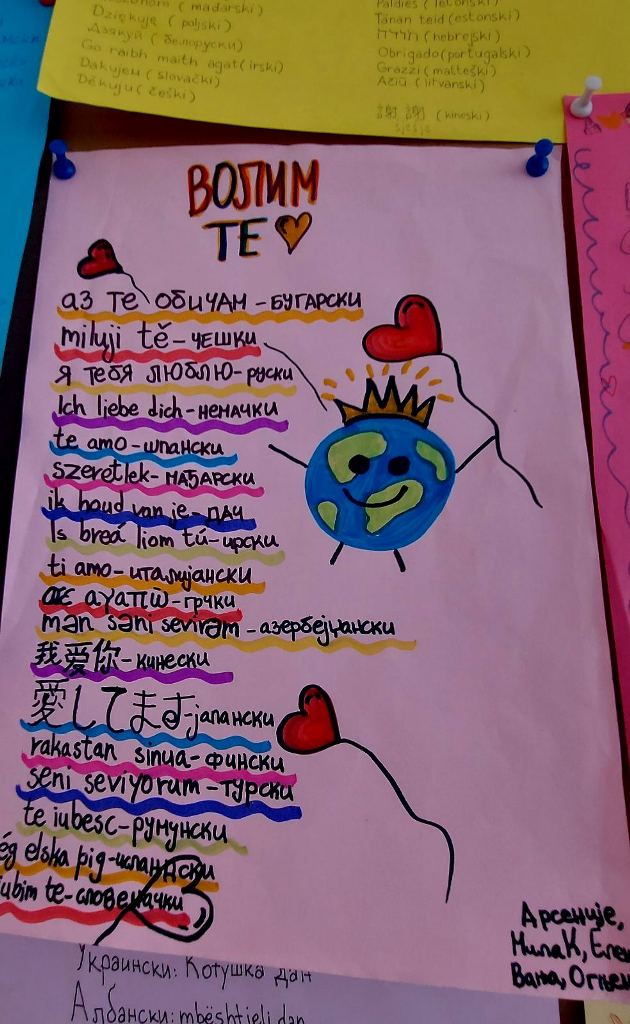 (mađarski)
Dziękuję (poljski)
Дзякуй (бeлopycки)
Go raibh maith agat (irski)
Dakujem (slovački)
Děkuju (češki)
Paldies (letonski)
Tänan teid (estonski)
תודה (hebrejski)
Obrigado (portugalski)
Grazzi (malteški)
Ačiū (litvanski)
謝謝 (kineski)
ВОЛИМ
ТЕ
аз те обичам - БУГАРСКИ
miluji tě - ЧЕШКИ
я тебя люблю - РУСКИ
Ich liebe dich - НЕМАЧКИ
te amo - ШПАНСКИ
szeretlek - МАЂАРСКИ
ik houd van je -
Is breá liom tú - ИРСКИ
ti amo - ИТАЛИЈАНСКИ
σε αγαπώ - ГРЧКИ
mən səni sevirəm - азербејџански
我爱你 - КИНЕСКИ
愛してます - јапански
rakastan sinua - ФИНСКИ
seni seviyorum - ТУРСКИ
te iubesc - РУМУНСКИ
ég elska þig - ИСЛАНДСКИ
ubim te - СЛОВЕНАЧКИ
Арсеније,
Мила К, Елен
Вања, Огњен
Украински: Котушка дан
Албански: mbështjell dan